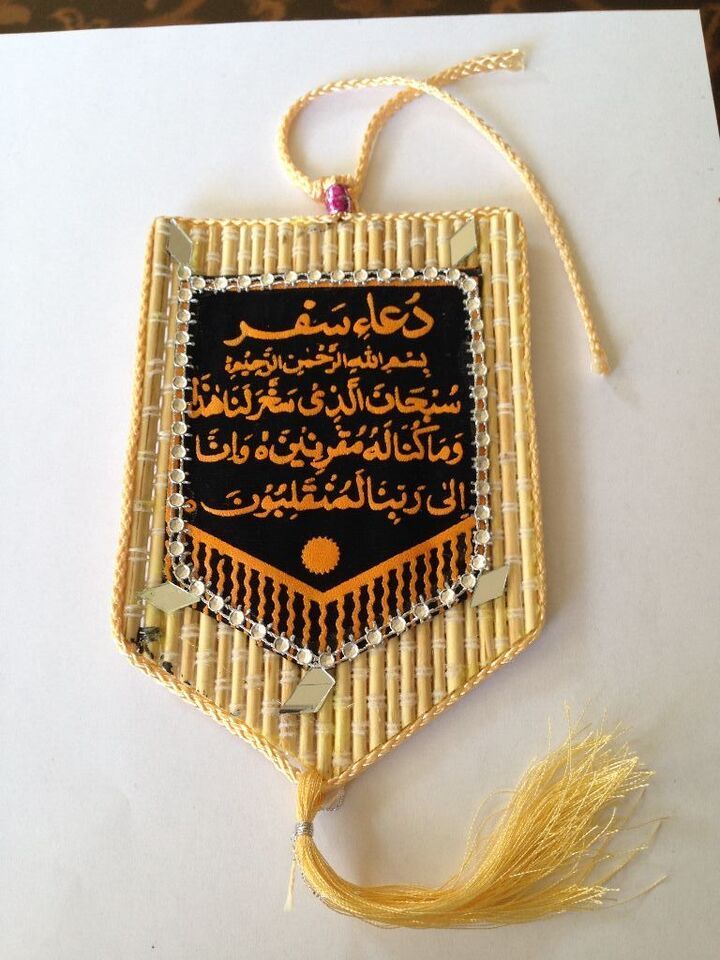 دُعاءِ سَفر
بِسْمِ اللهِ الرَّحْمٰنِ الرَّحِيْمِ
سُبْحَانَ الَّذِىْ سَخَّرَ لَنَا هٰذَا
وَمَا كُنَّا لَهُ مُقْرِنِيْنَ ہ وَاِنَّا
اِلٰى رَبِّنَا لَمُنْقَلِبُوْنَ ہ